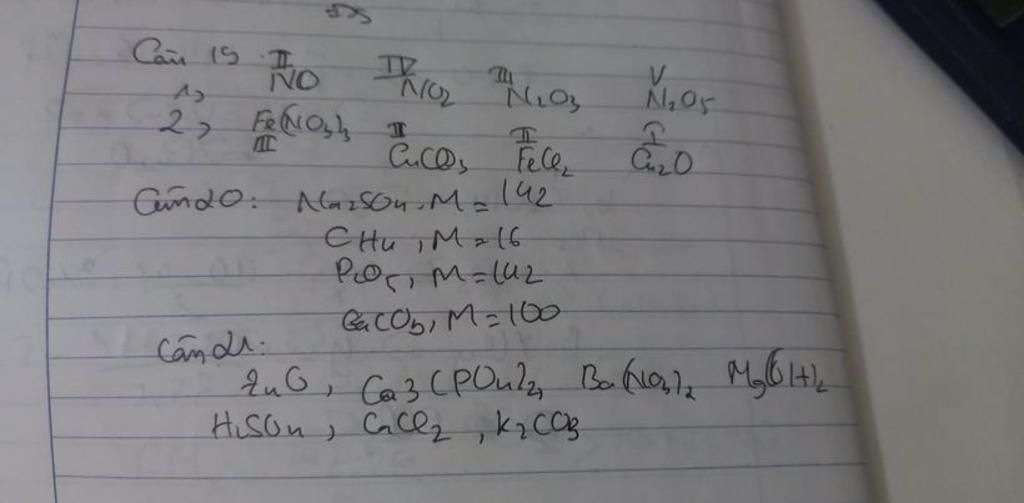 Câu 19
1, II NO IV NO2 III N2O3 V N2O5
2, Fe(NO3)3 III II CuCO3 II FeCl2 I Cu2O
Câu 20: Na2SO4, M = 142
CH4, M = 16
P2O5, M = 142
CaCO3, M = 100
Câu 21:
ZnO, Ca3(PO4)2, Ba(NO3)2 Mg(OH)2
H2SO4, CaCl2, K2CO3